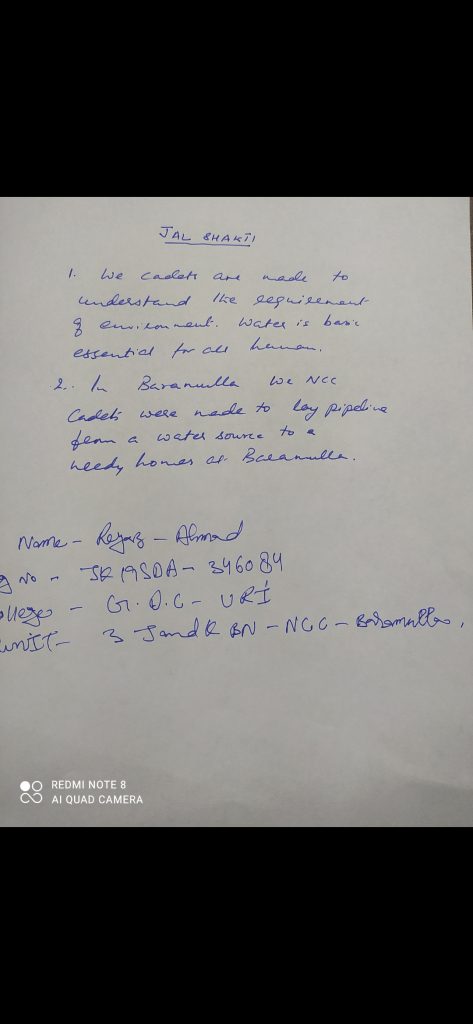 JAL SHAKTI
1. We cadets are made to
understand the requirement
of environment. Water is basic
essential for all human.
2. In Baramulla we NCC
Cadets were made to lay pipeline
from a water source to a
needy homes at Baramulla.
Name - Reyaz - Ahmad
g No - JK19SDA - 346084
ollege - G.D.C - URI
UNIT - 3 JandK BN - NCC - Baramulla,
REDMI NOTE 8
AI QUAD CAMERA